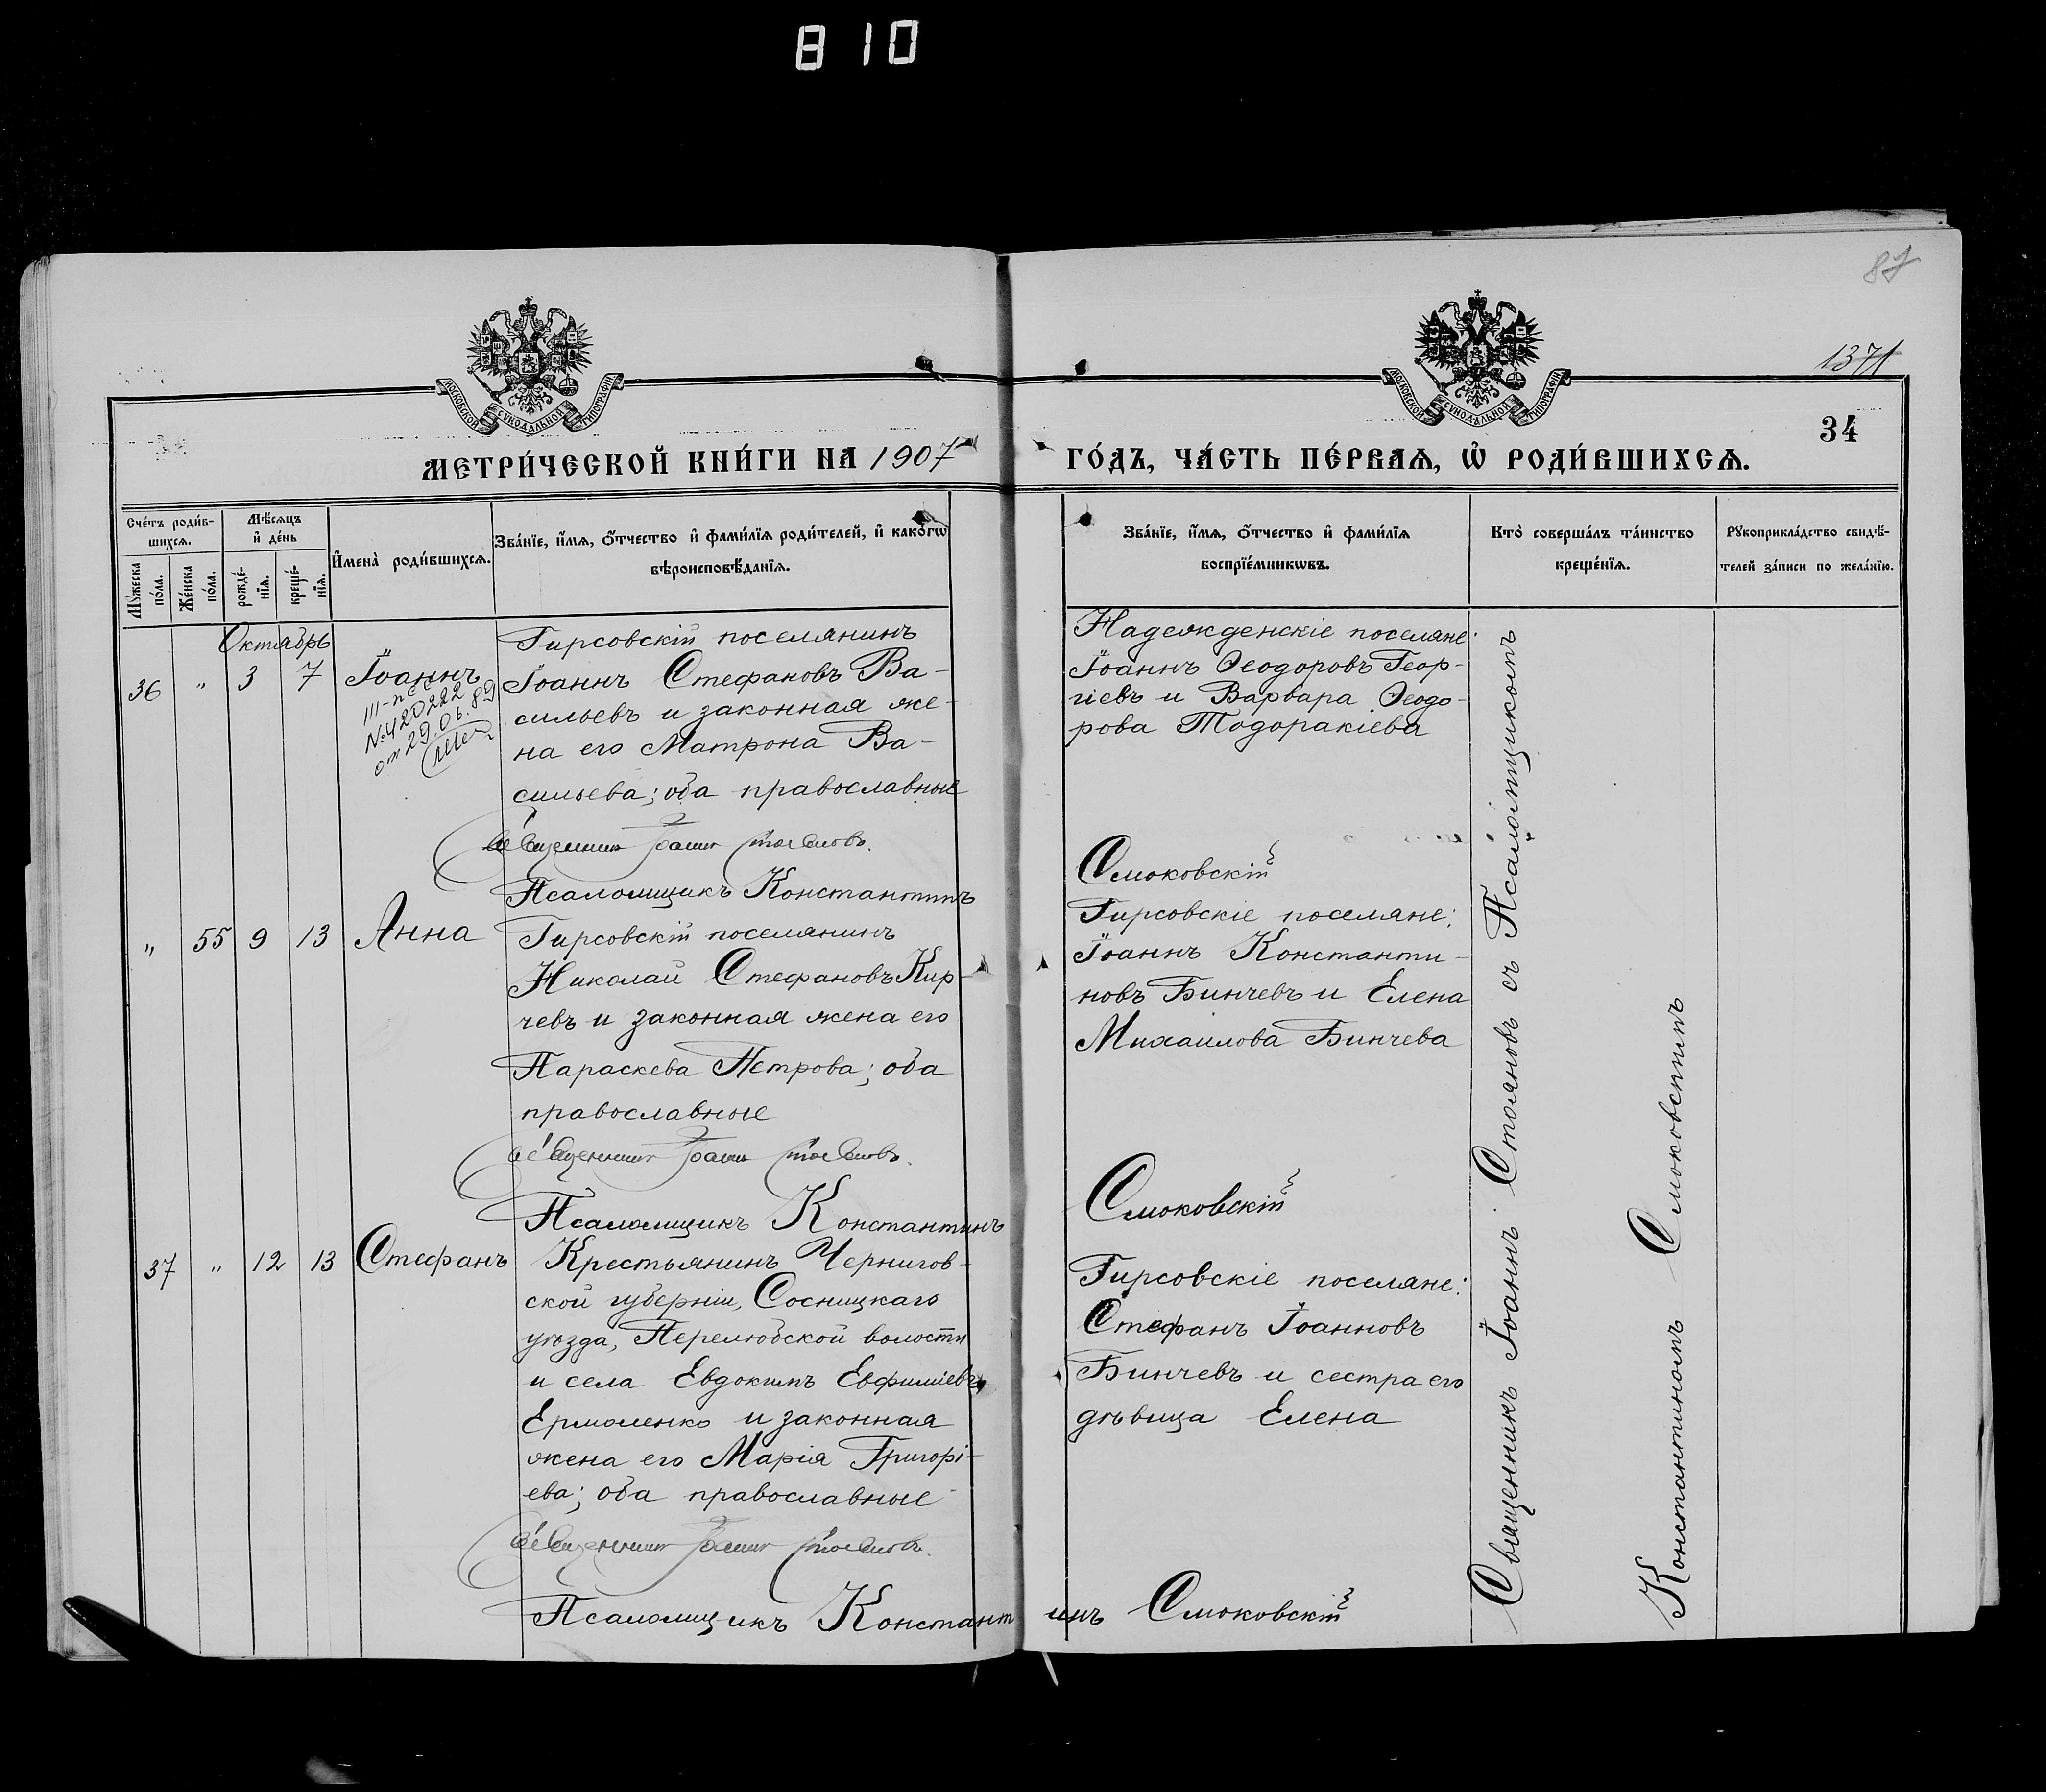 810
87
1371
34
МОСКОВСКОЙ СУНОДАЛЬНОЙ ТИПОГРАФІИ
МОСКОВСКОЙ СУНОДАЛЬНОЙ ТИПОГРАФІИ
МЕТРИ́ЧЕСКОЙ КНИ́ГИ НА 1907
ГО́ДЪ, ЧА́СТЬ ПЕ́РВАѦ, Ѡ҆ РОДИ́ВШИХСѦ.
Сче́тъ роди́в-
шихсѧ.
Мꙋ́жеска
по́ла.
Же́нска
по́ла.
Мѣ́сѧцъ
и҆ де́нь
рожде́-
нїѧ.
креще́-
нїѧ.
И҆мена̀ роди́вшихсѧ.
Зва́нїе, и҆́мѧ, ѻ҆́тчество и҆ фами́лїѧ роди́телей, и҆ како́гѡ
вѣроисповѣ́данїѧ.
Зва́нїе, и҆́мѧ, ѻ҆́тчество и҆ фами́лїѧ
воспрїе́мникѡвъ.
Кто̀ соверша́лъ та́инство
креще́нїѧ.
Рꙋкоприкла́дство свидѣ́-
телей за́писи по жела́нїю.
Октябрь
36 " 3 7 Іоаннъ
№420222
от 29.06.89
Гирсовскій поселянинъ
Іоаннъ Стефановъ Ва-
сильевъ и законная же-
на его Матрона Ва-
сильева; оба православные
Священникъ Іоаннъ Стояновъ.
Псаломщикъ Константинъ
Надежденскіе поселяне:
Іоаннъ Ѳеодоровъ Геор-
гіевъ и Варвара Ѳеодо-
рова Тодоракіева
Смоковскій
" 55 9 13 Анна
Гирсовскій поселянинъ
Николай Стефановъ Кир-
чевъ и законная жена его
Параскева Петрова; оба
православные
Священникъ Іоаннъ Стояновъ.
Псаломщикъ Константинъ
Гирсовскіе поселяне:
Іоаннъ Константи-
новъ Бинчевъ и Елена
Михаилова Бинчева
Смоковскій
37 " 12 13 Стефанъ
Крестьянинъ Чернигов-
ской губерніи, Сосницкаго
уѣзда, Перелюбской волости
и села Евдокимъ Евфиміевъ
Ермоленко и законная
жена его Марія Григорі-
ева; оба православные
Священникъ Іоаннъ Стояновъ.
Псаломщикъ Константинъ Смоковскій
Гирсовскіе поселяне:
Стефанъ Іоанновъ
Бинчевъ и сестра его
дѣвица Елена
Священникъ Іоаннъ Стояновъ съ Псаломщикомъ
Константиномъ Смоковскимъ